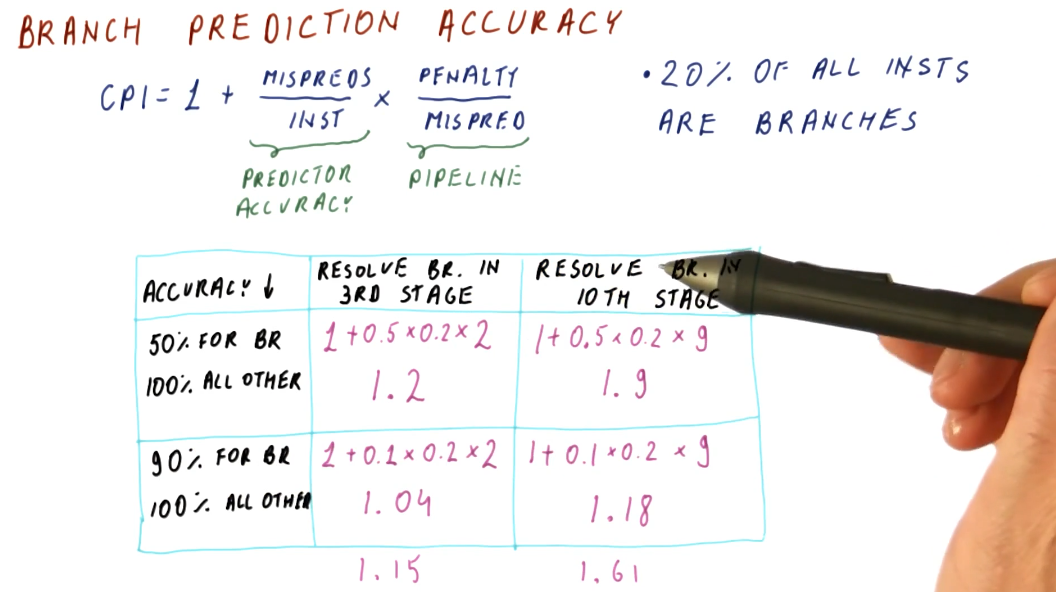 BRANCH PREDICTION ACCURACY
CPI = 1 + MISPREDS / INST × PENALTY / MISPRED
PREDICTOR ACCURACY
PIPELINE
• 20% OF ALL INSTS
ARE BRANCHES
ACCURACY ↓
RESOLVE BR. IN
3RD STAGE
RESOLVE BR. IN
10TH STAGE
50% FOR BR
100% ALL OTHER
1 + 0.5 × 0.2 × 2
1.2
1 + 0.5 × 0.2 × 9
1.9
90% FOR BR
100% ALL OTHER
1 + 0.1 × 0.2 × 2
1.04
1 + 0.1 × 0.2 × 9
1.18
1.15
1.61